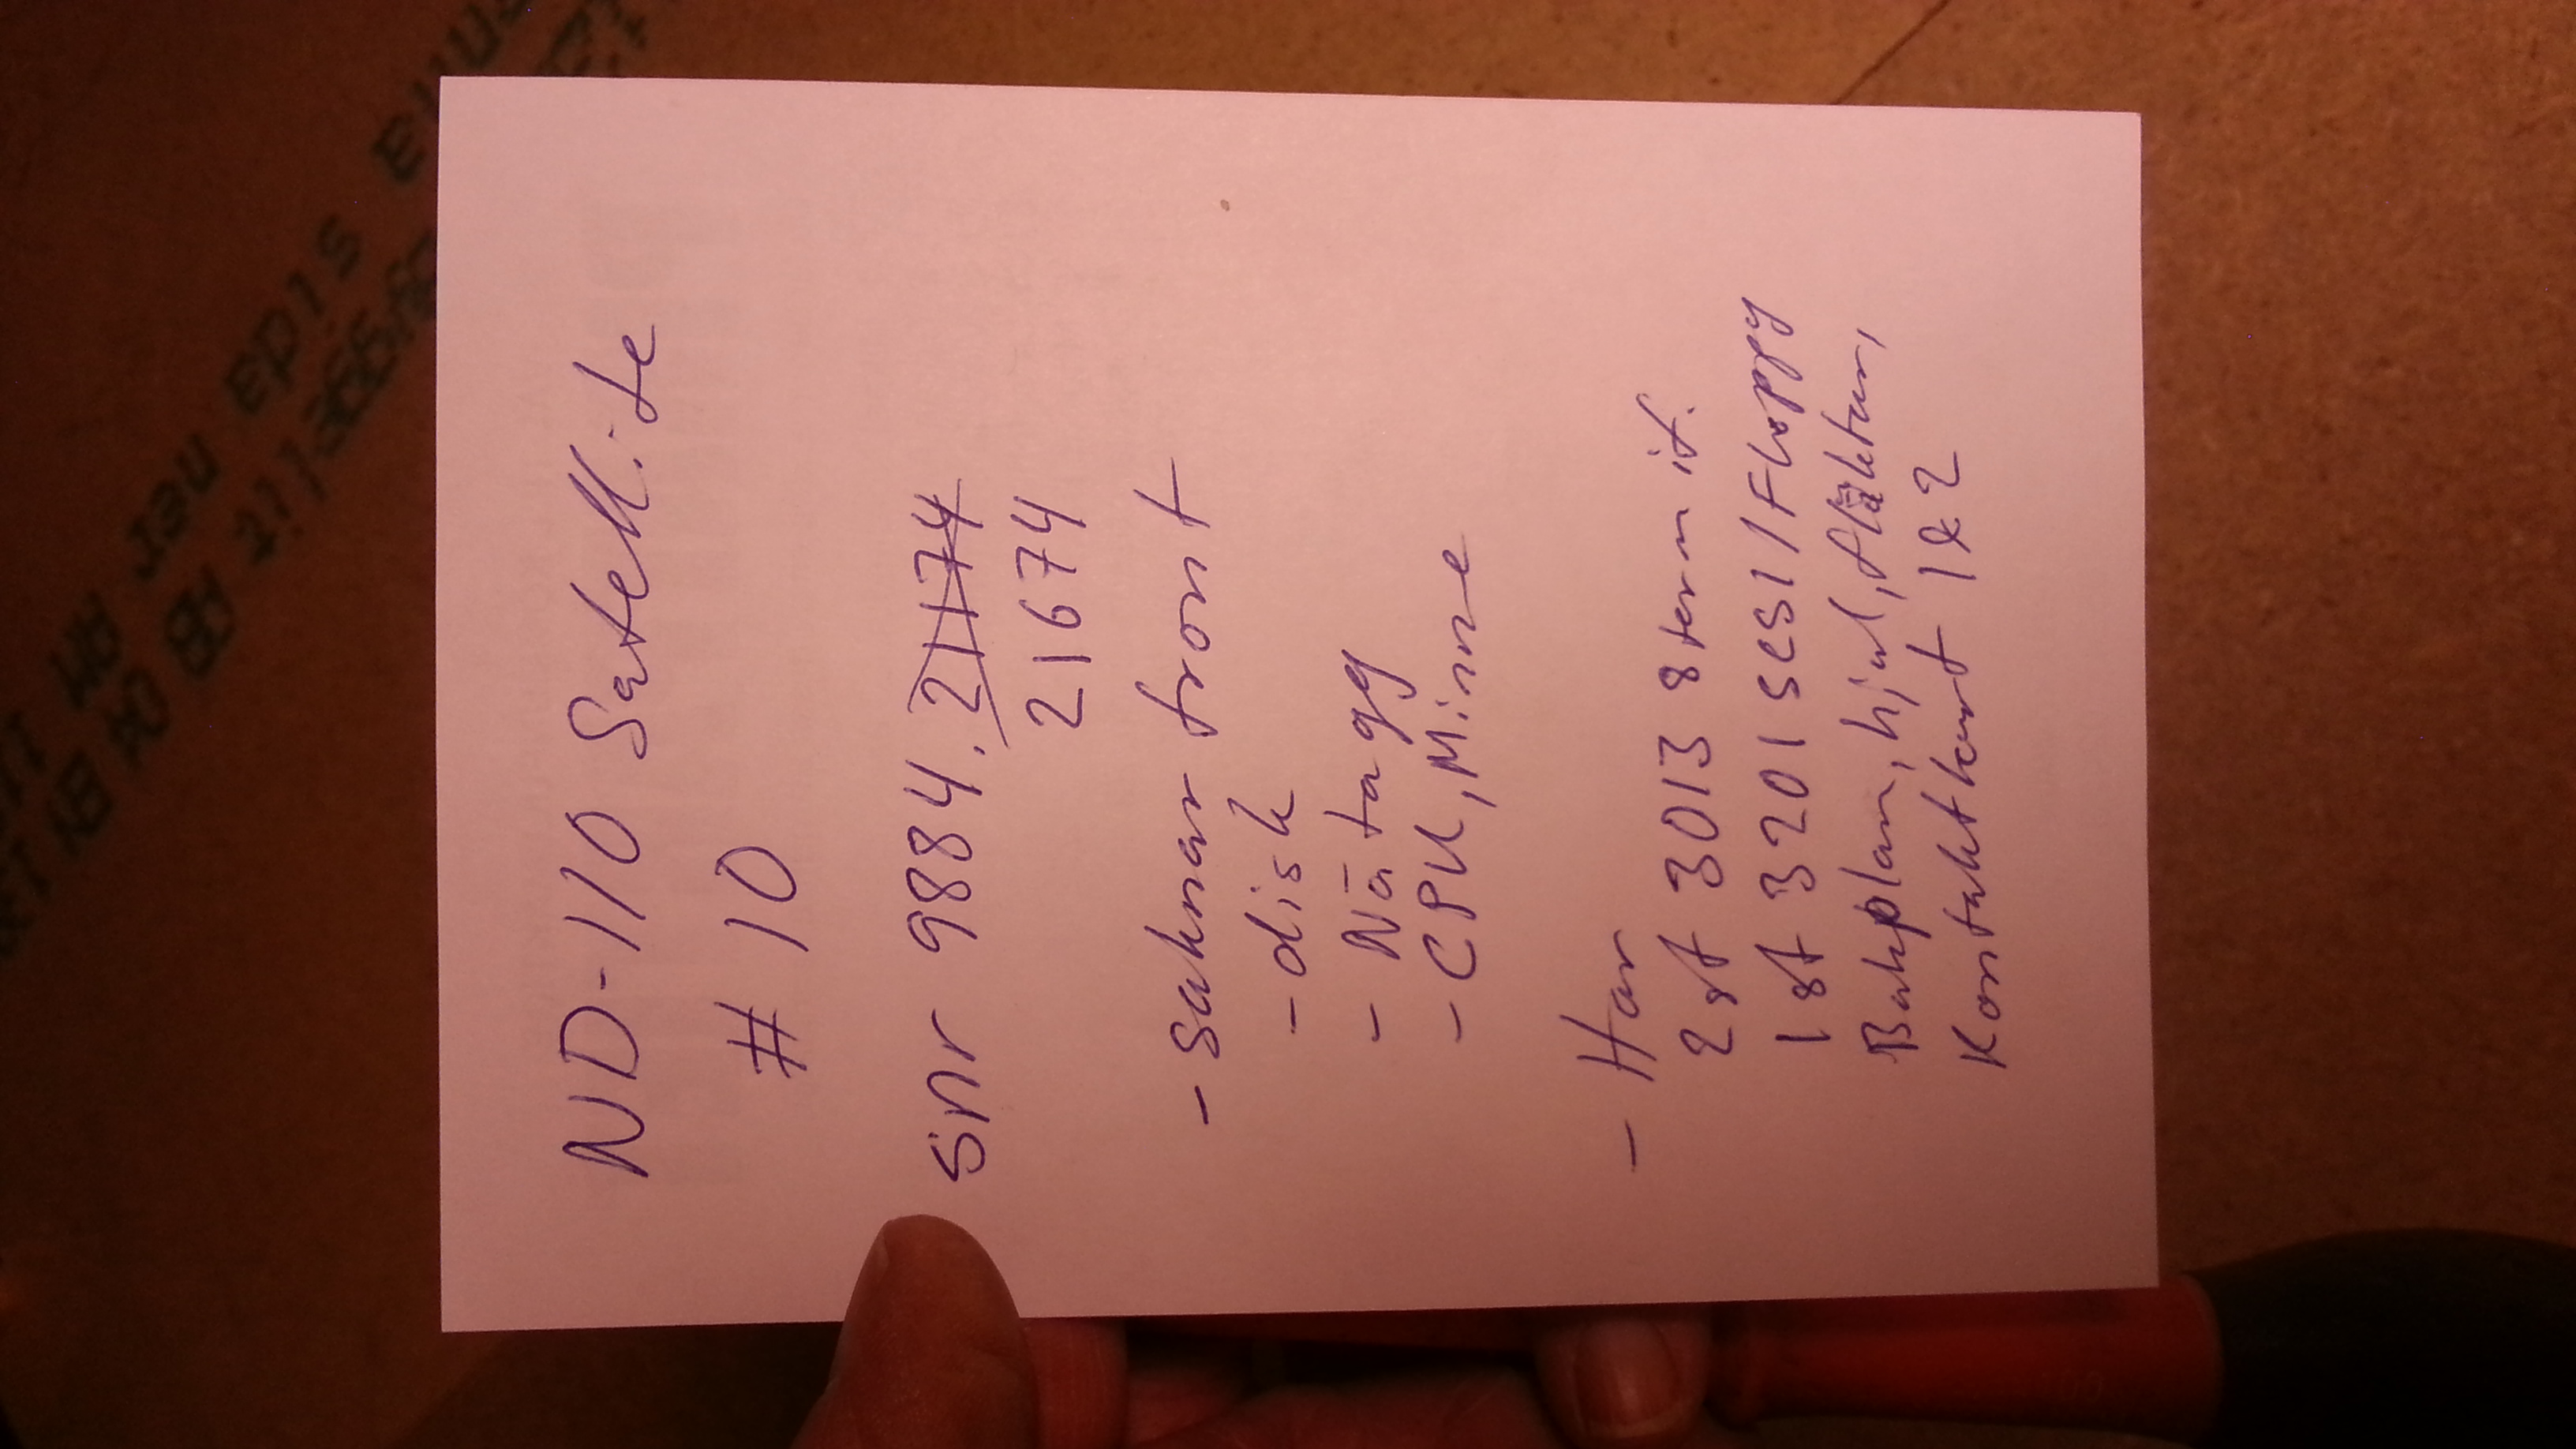 ND-110 Satellite
# 10
Snr 9884.21174
21674
- saknar front
- disk
- Nätagg
- CPU, Minne
- Har
2 st 3013 8 term if.
1 st 3201 SCSI/Floppy
Bakplan, hjul, fläktar,
Kontaktkort 1&2